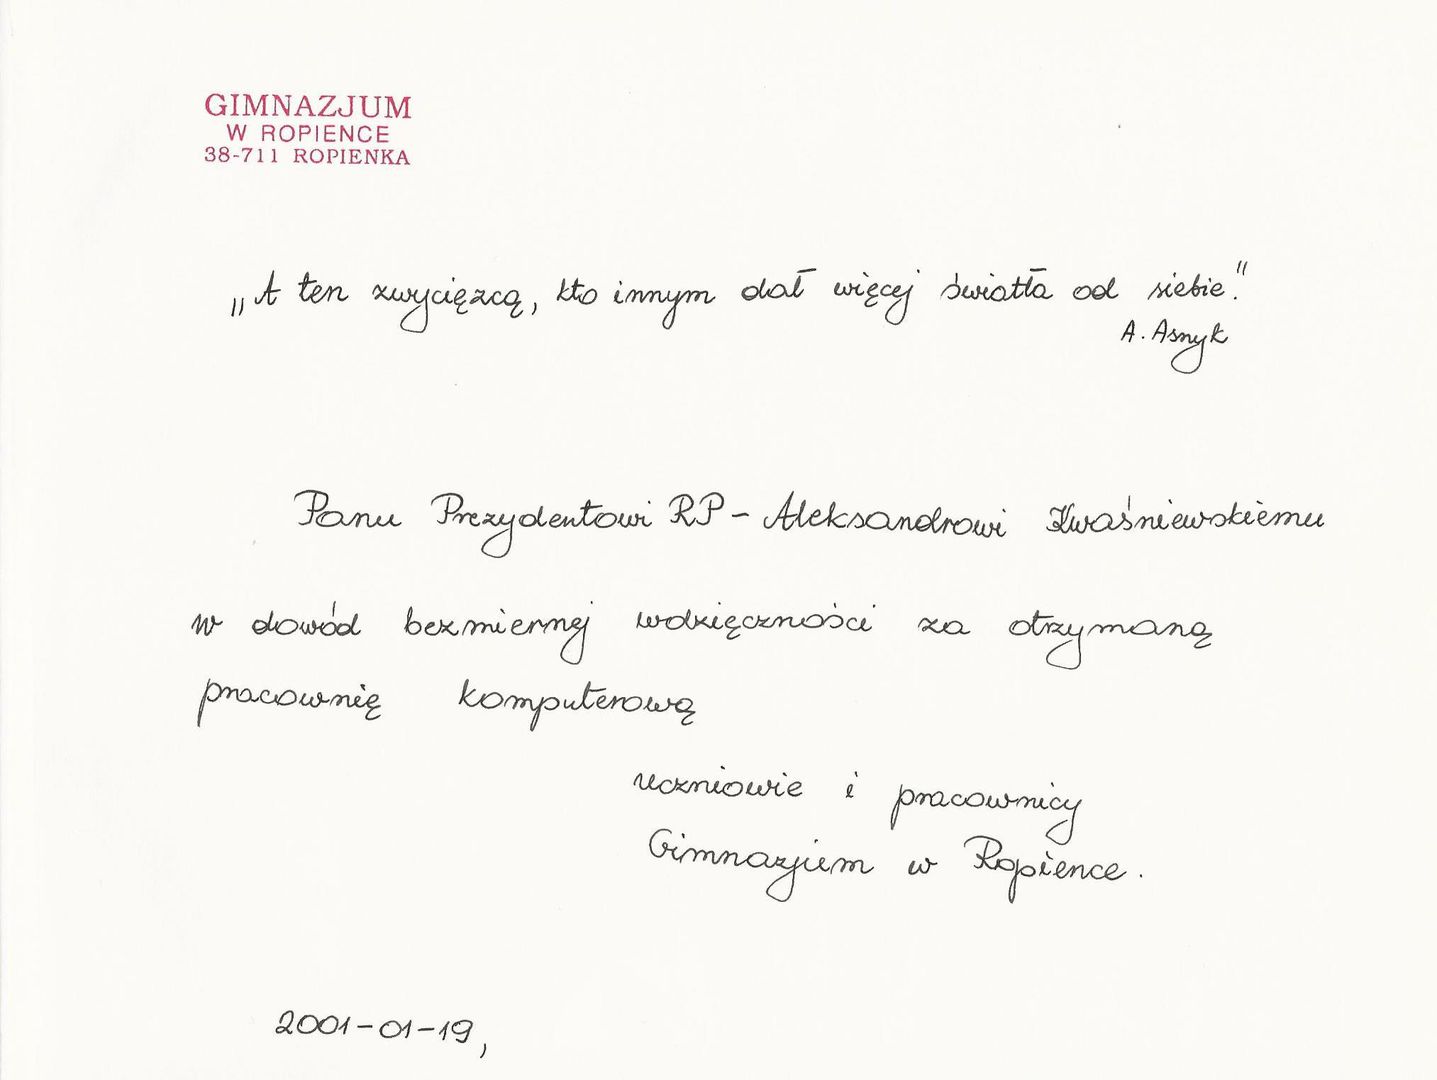 GIMNAZJUM
W ROPIENCE
38-711 ROPIENKA
„A ten zwycięzcą, kto innym dał więcej światła od siebie."
A. Asnyk
Panu Prezydentowi RP - Aleksandrowi Kwaśniewskiemu
w dowód bezmiernej wdzięczności za otrzymaną
pracownię komputerową
uczniowie i pracownicy
Gimnazjum w Ropience.
2001-01-19,